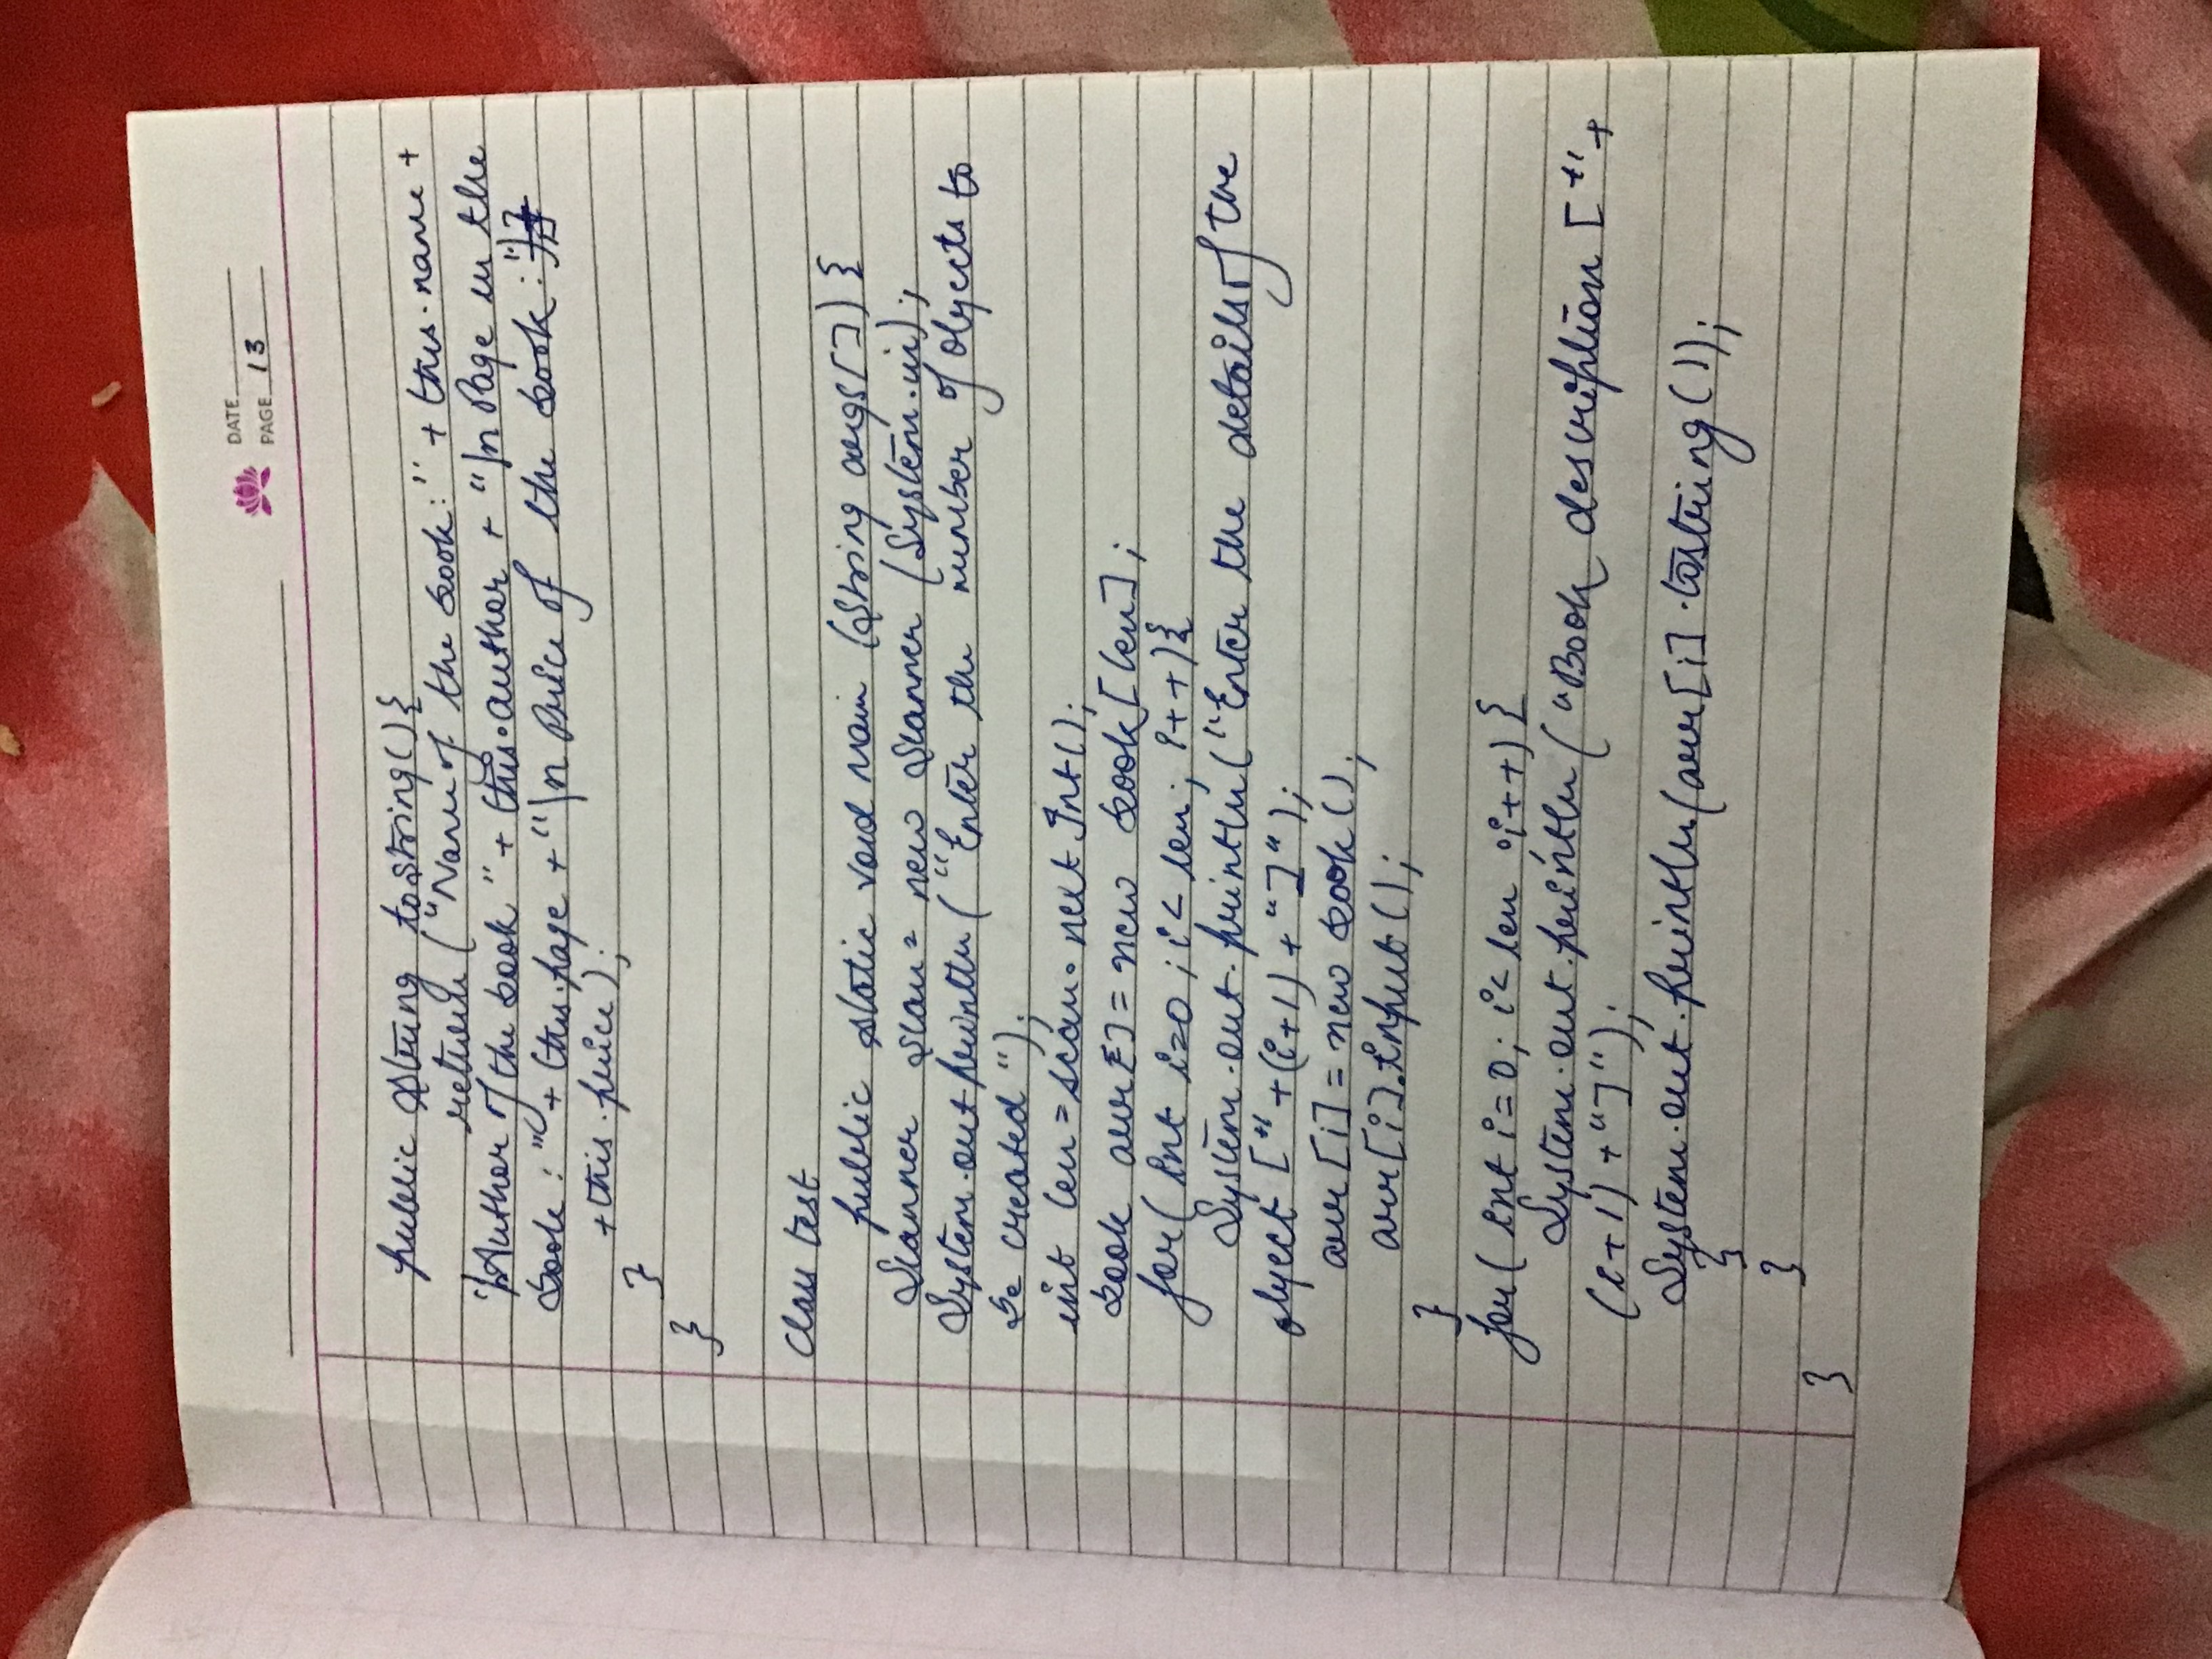 DATE
PAGE 13
public String toString(){
return ("Name of the book:" + this.name +
"\Author of the book" + this.author + "\n Page in the
book:" + this.page + "\n Price of the book:")
+this.price);
}
}
class test
public static void main (String args[]) {
Scanner scan = new Scanner (System.in);
System.out println ("Enter the number of objects to
be created");
int len = scan.nextInt();
book arr[] = new book[len];
for( int i=0; i< len; i++){
System.out.println("Enter the details of the
object ["+(i+1) + "]");
arr[i] = new book();
arr[i].input();
}
for( int i=0; i< len ;i++) {
System.out.println ("Book description ["+
(i+1) +"]");
System.out.println(arr[i].tostring());
}
}
}